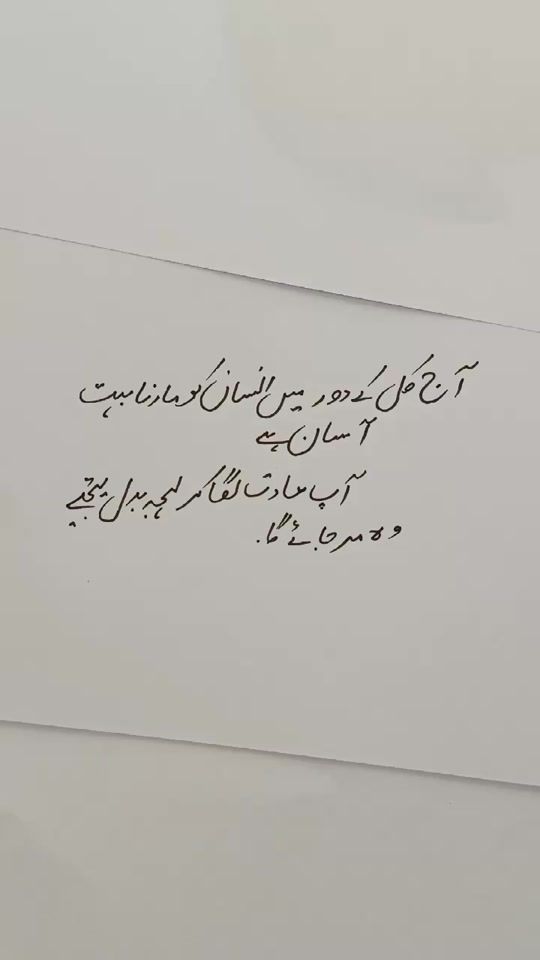 آج کل کے دور میں انسان کو مارنا بہت
آسان ہے
آپ عادت لگا کر لہجہ بدل لیجئے
وہ مر جائے گا.